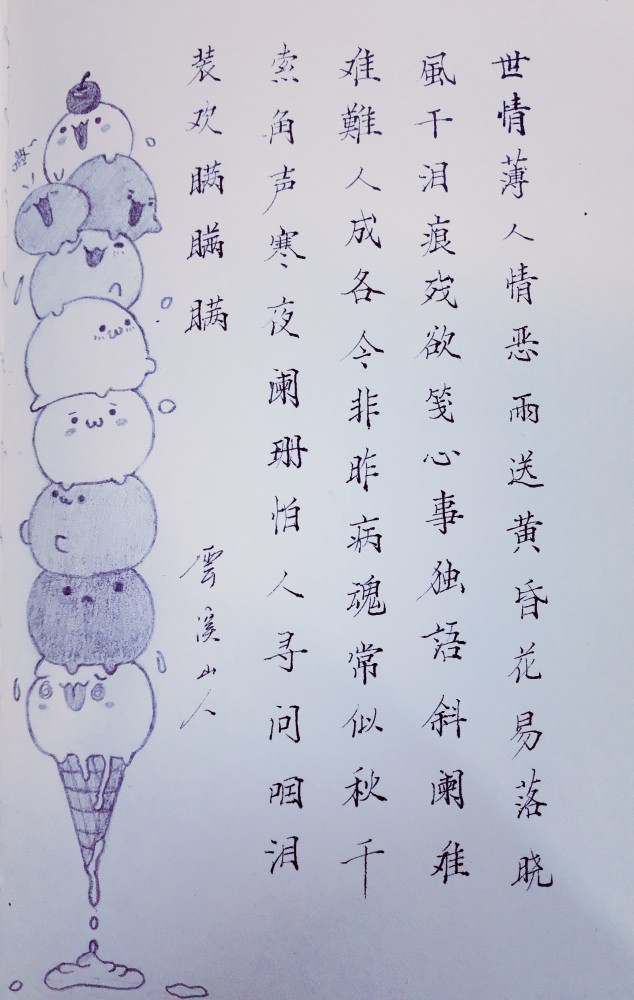 世情薄人情恶雨送黄昏花易落晓
風干泪痕残欲笺心事独語斜阑难
难難人成各今非昨病魂常似秋千
索角声寒夜阑珊怕人寻问咽泪
装欢瞒瞒瞒
雲溪山人